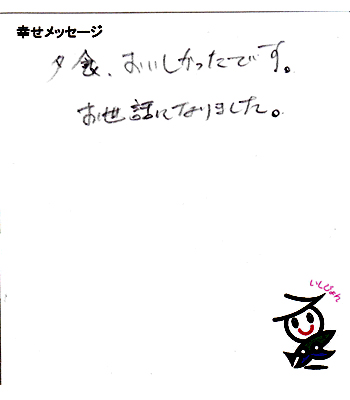 幸せメッセージ
夕食、おいしかったです。
お世話になりました。